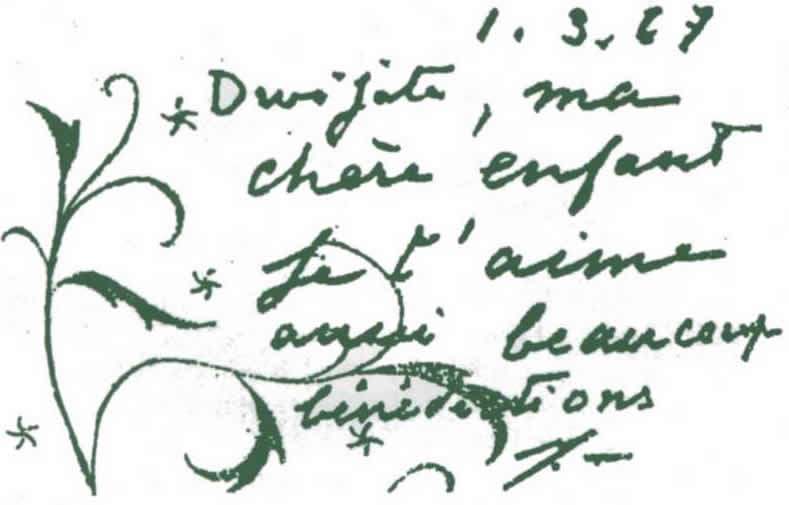 1.3.67
Dwijate, ma
chère enfant
Je t'aime
aussi beaucoup
bénédictions